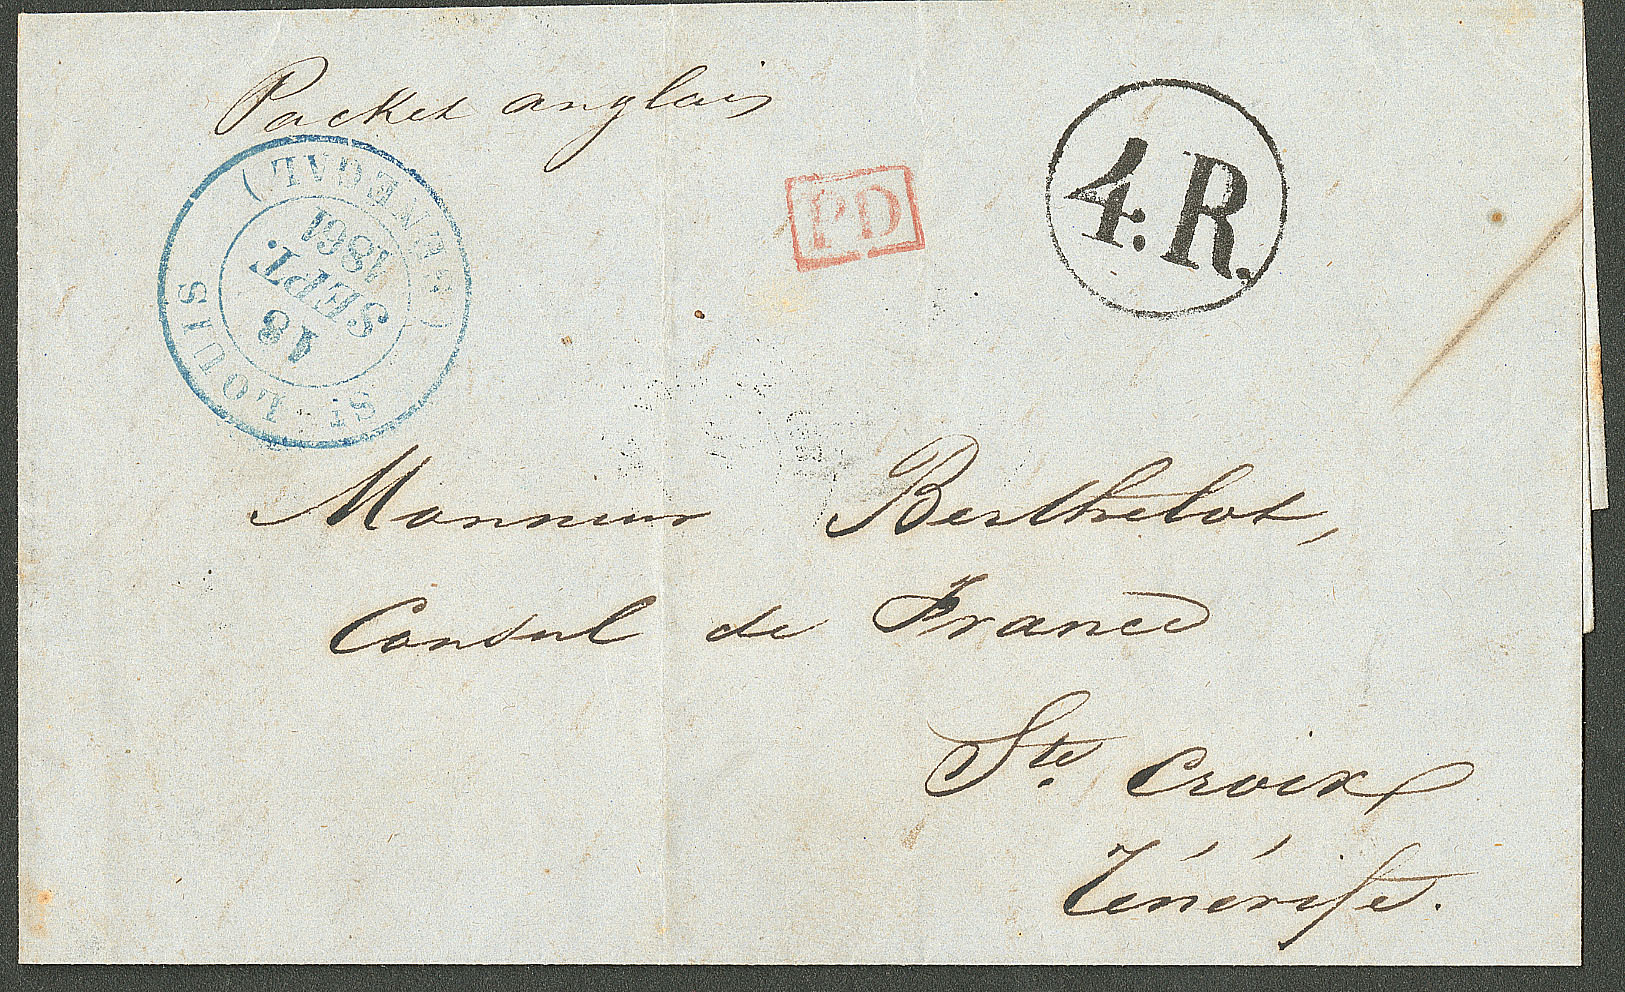 Packet anglais
ST LOUIS
(SÉNÉGAL)
18
SEPT.
1861
PD
4.R.
Monsieur Berthelot,
Consul de France
Ste. Croix
Ténérife.